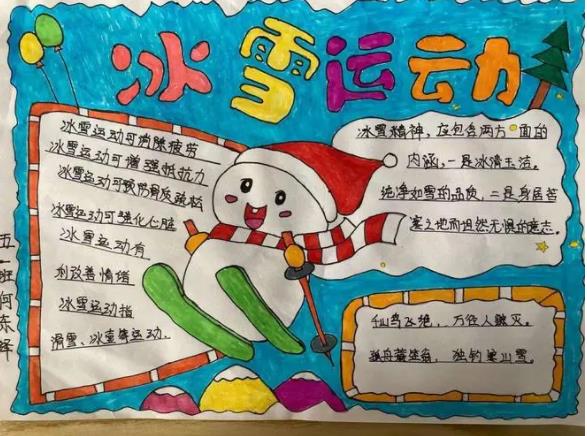 冰雪运动
冰雪运动可消除疲劳
冰雪运动可增强抵抗力
冰雪运动可预防骨质疏松
冰雪运动可强化心脏
冰雪运动有
利改善情绪
冰雪运动指
滑雪、冰壶等运动.
冰雪精神，应包含两方面的
内涵，一是冰清玉洁。
纯净如雪的品质，二是身居苦
寒之地而坦然无惧的意志
千山鸟飞绝，万径人踪灭。
孤舟蓑笠翁，独钓寒山雪。
五一班何东